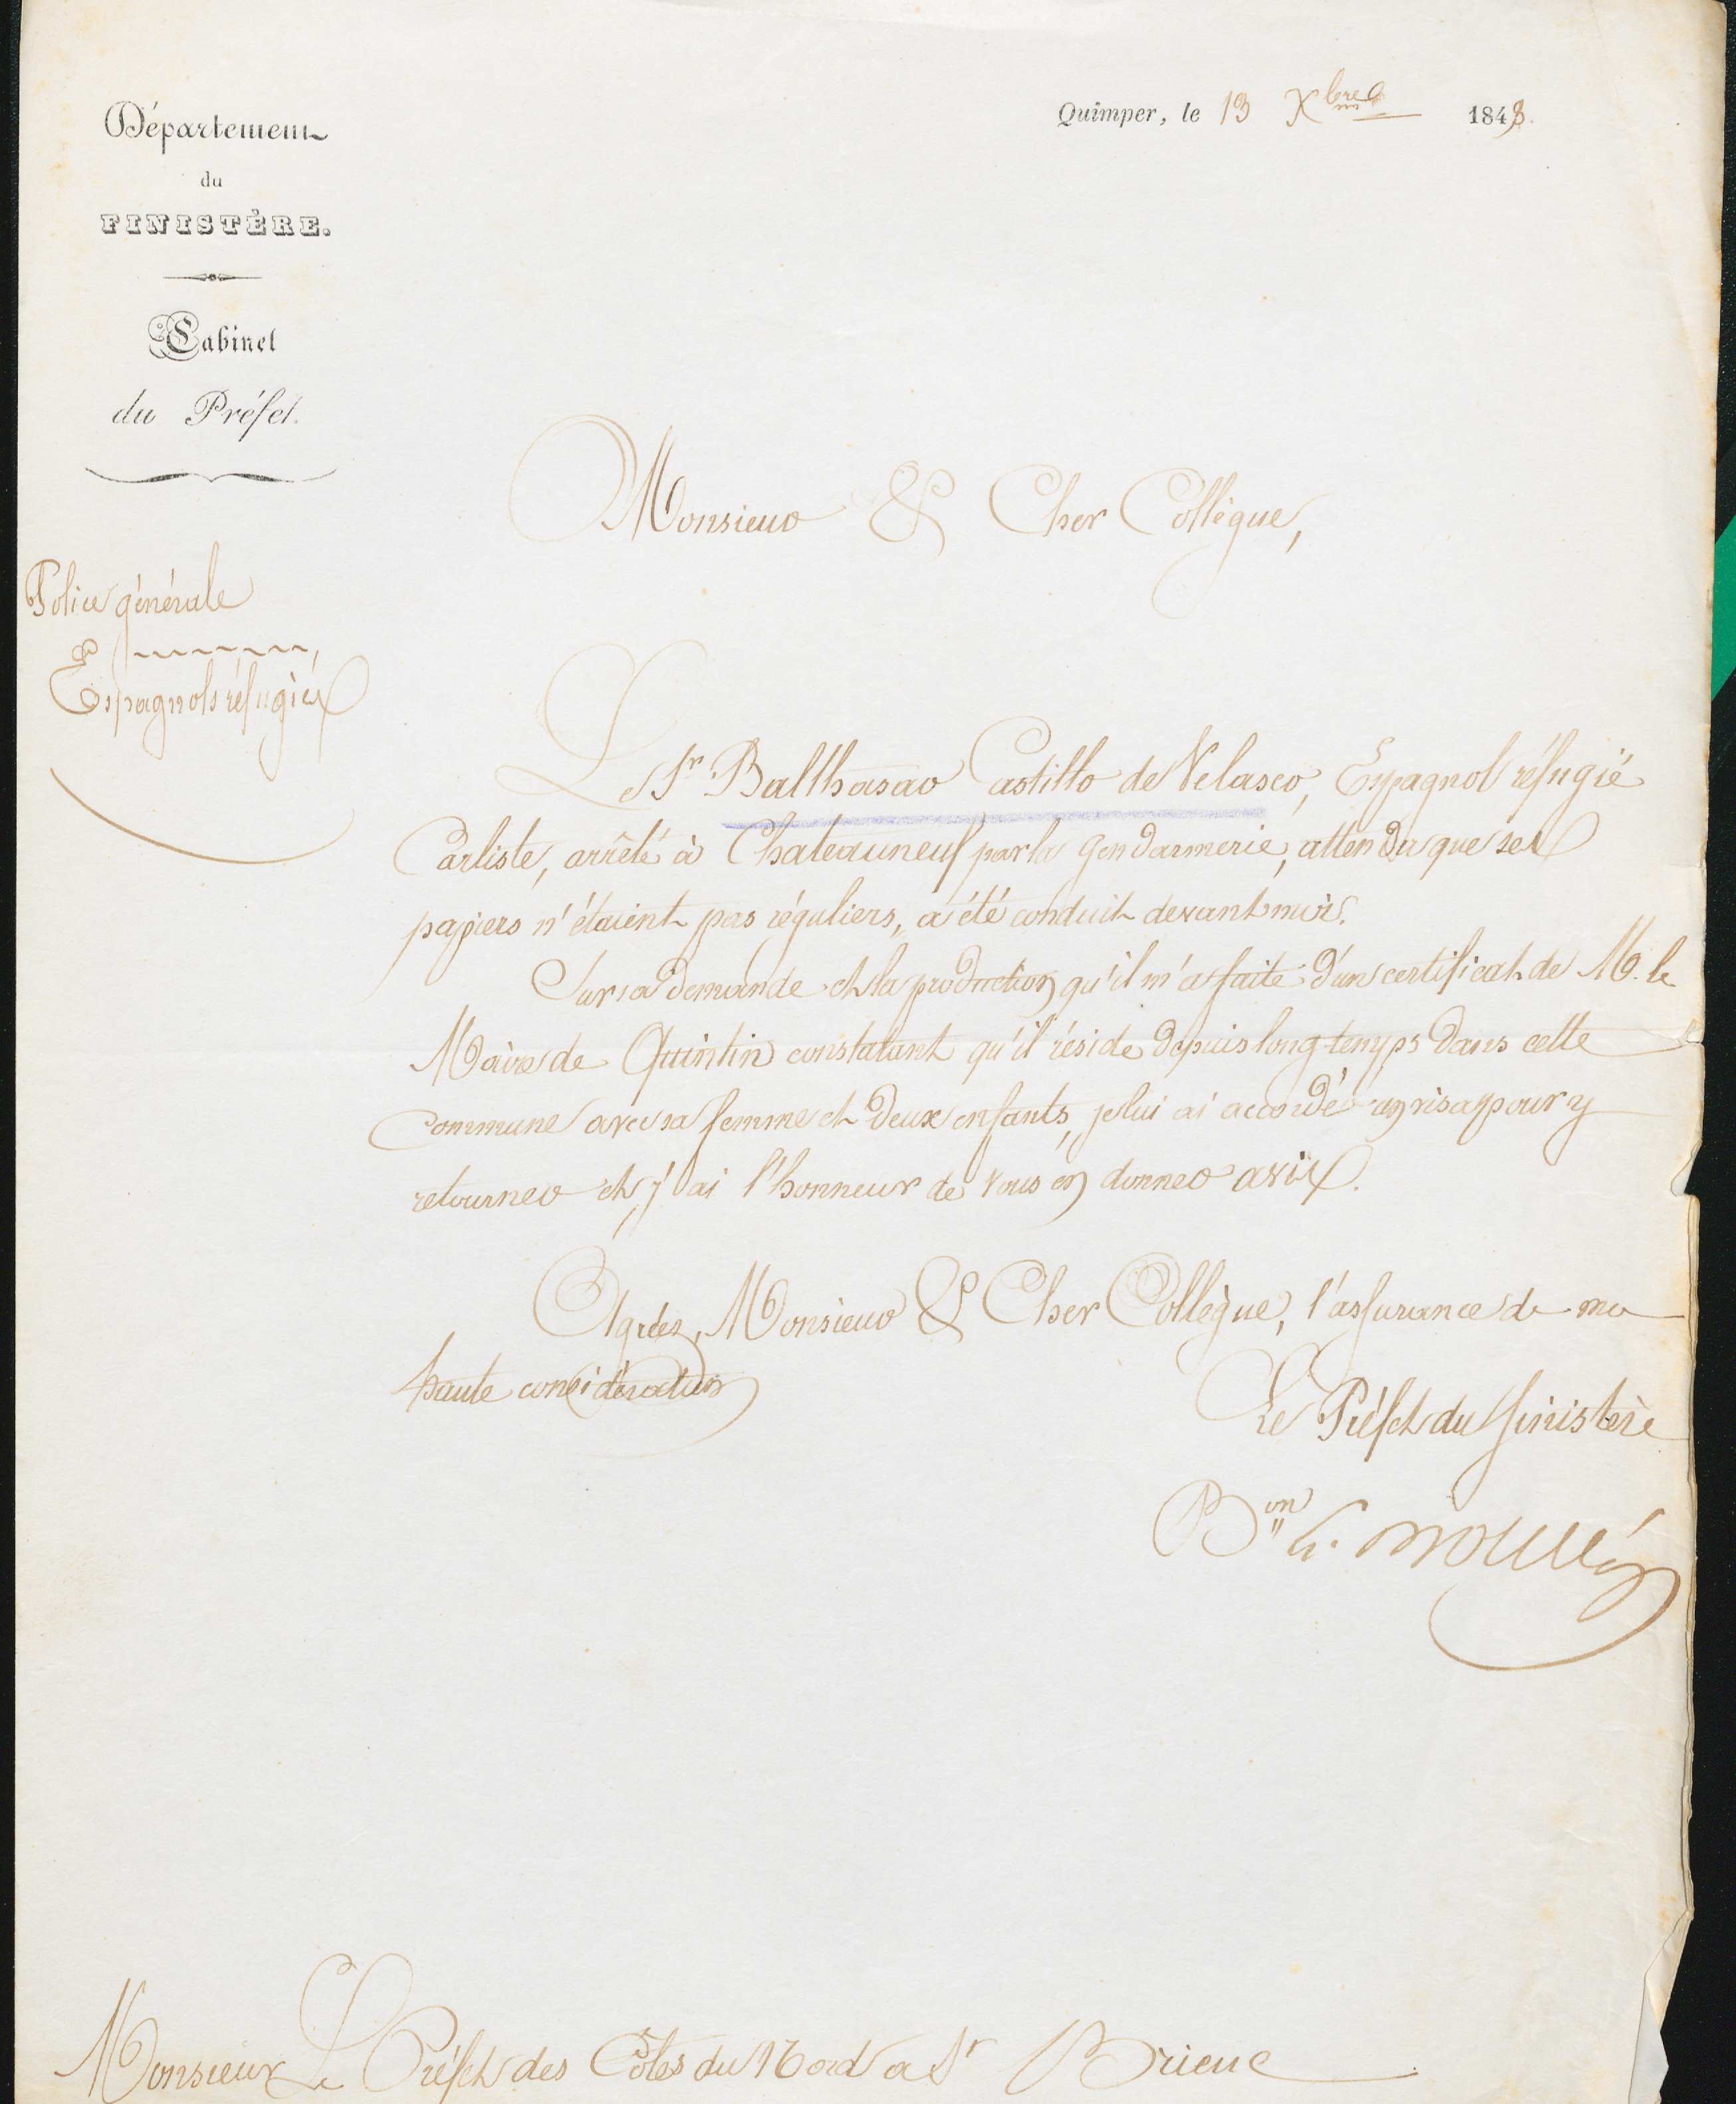 Département
du
FINISTÈRE.
Cabinet
du Préfet.
Quimper, le 13 Xbre 1843.
Police générale
Espagnols réfugiés
Monsieur & Cher Collègue,
Le Sr. Balthasar Castillo de Velasco, Espagnol réfugié
Carliste, arrêté à Chateauneuf par la gendarmerie, attendu que ses
papiers n'étaient pas réguliers, a été conduit devant moi.
Sur sa demande et la production qu'il m'a faite d'un certificat de M. le
Maire de Quintin constatant qu'il réside depuis long-temps dans cette
commune avec sa femme et deux enfants, je lui ai accordé un visa pour y
retourner et j'ai l'honneur de vous en donner avis.
Agréez, Monsieur & Cher Collègue, l'assurance de ma
haute considération
Le Préfet du Finistère
Bon
Monsieur Le Préfet des Côtes du Nord à St Brieuc